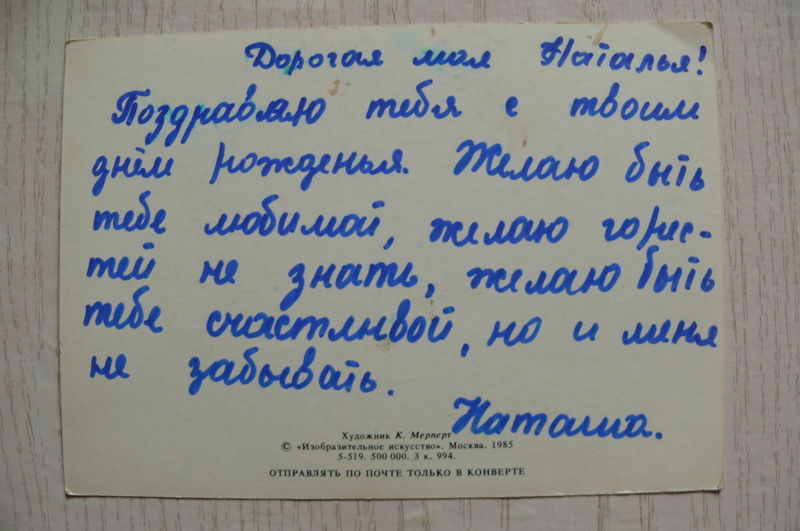 Дорогая моя Наталья!
Поздравляю тебя с твоим
днём рожденья. Желаю быть
тебе любимой, желаю горес-
тей не знать, желаю быть
тебе счастливой, но и меня
не забывать.
Наташа.
Художник К. Мерперт
© «Изобразительное искусство». Москва. 1985
5-519. 500 000. 3 к. 994.
ОТПРАВЛЯТЬ ПО ПОЧТЕ ТОЛЬКО В КОНВЕРТЕ